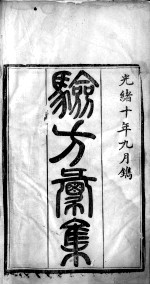 光緒十年九月鐫
驗方彙集